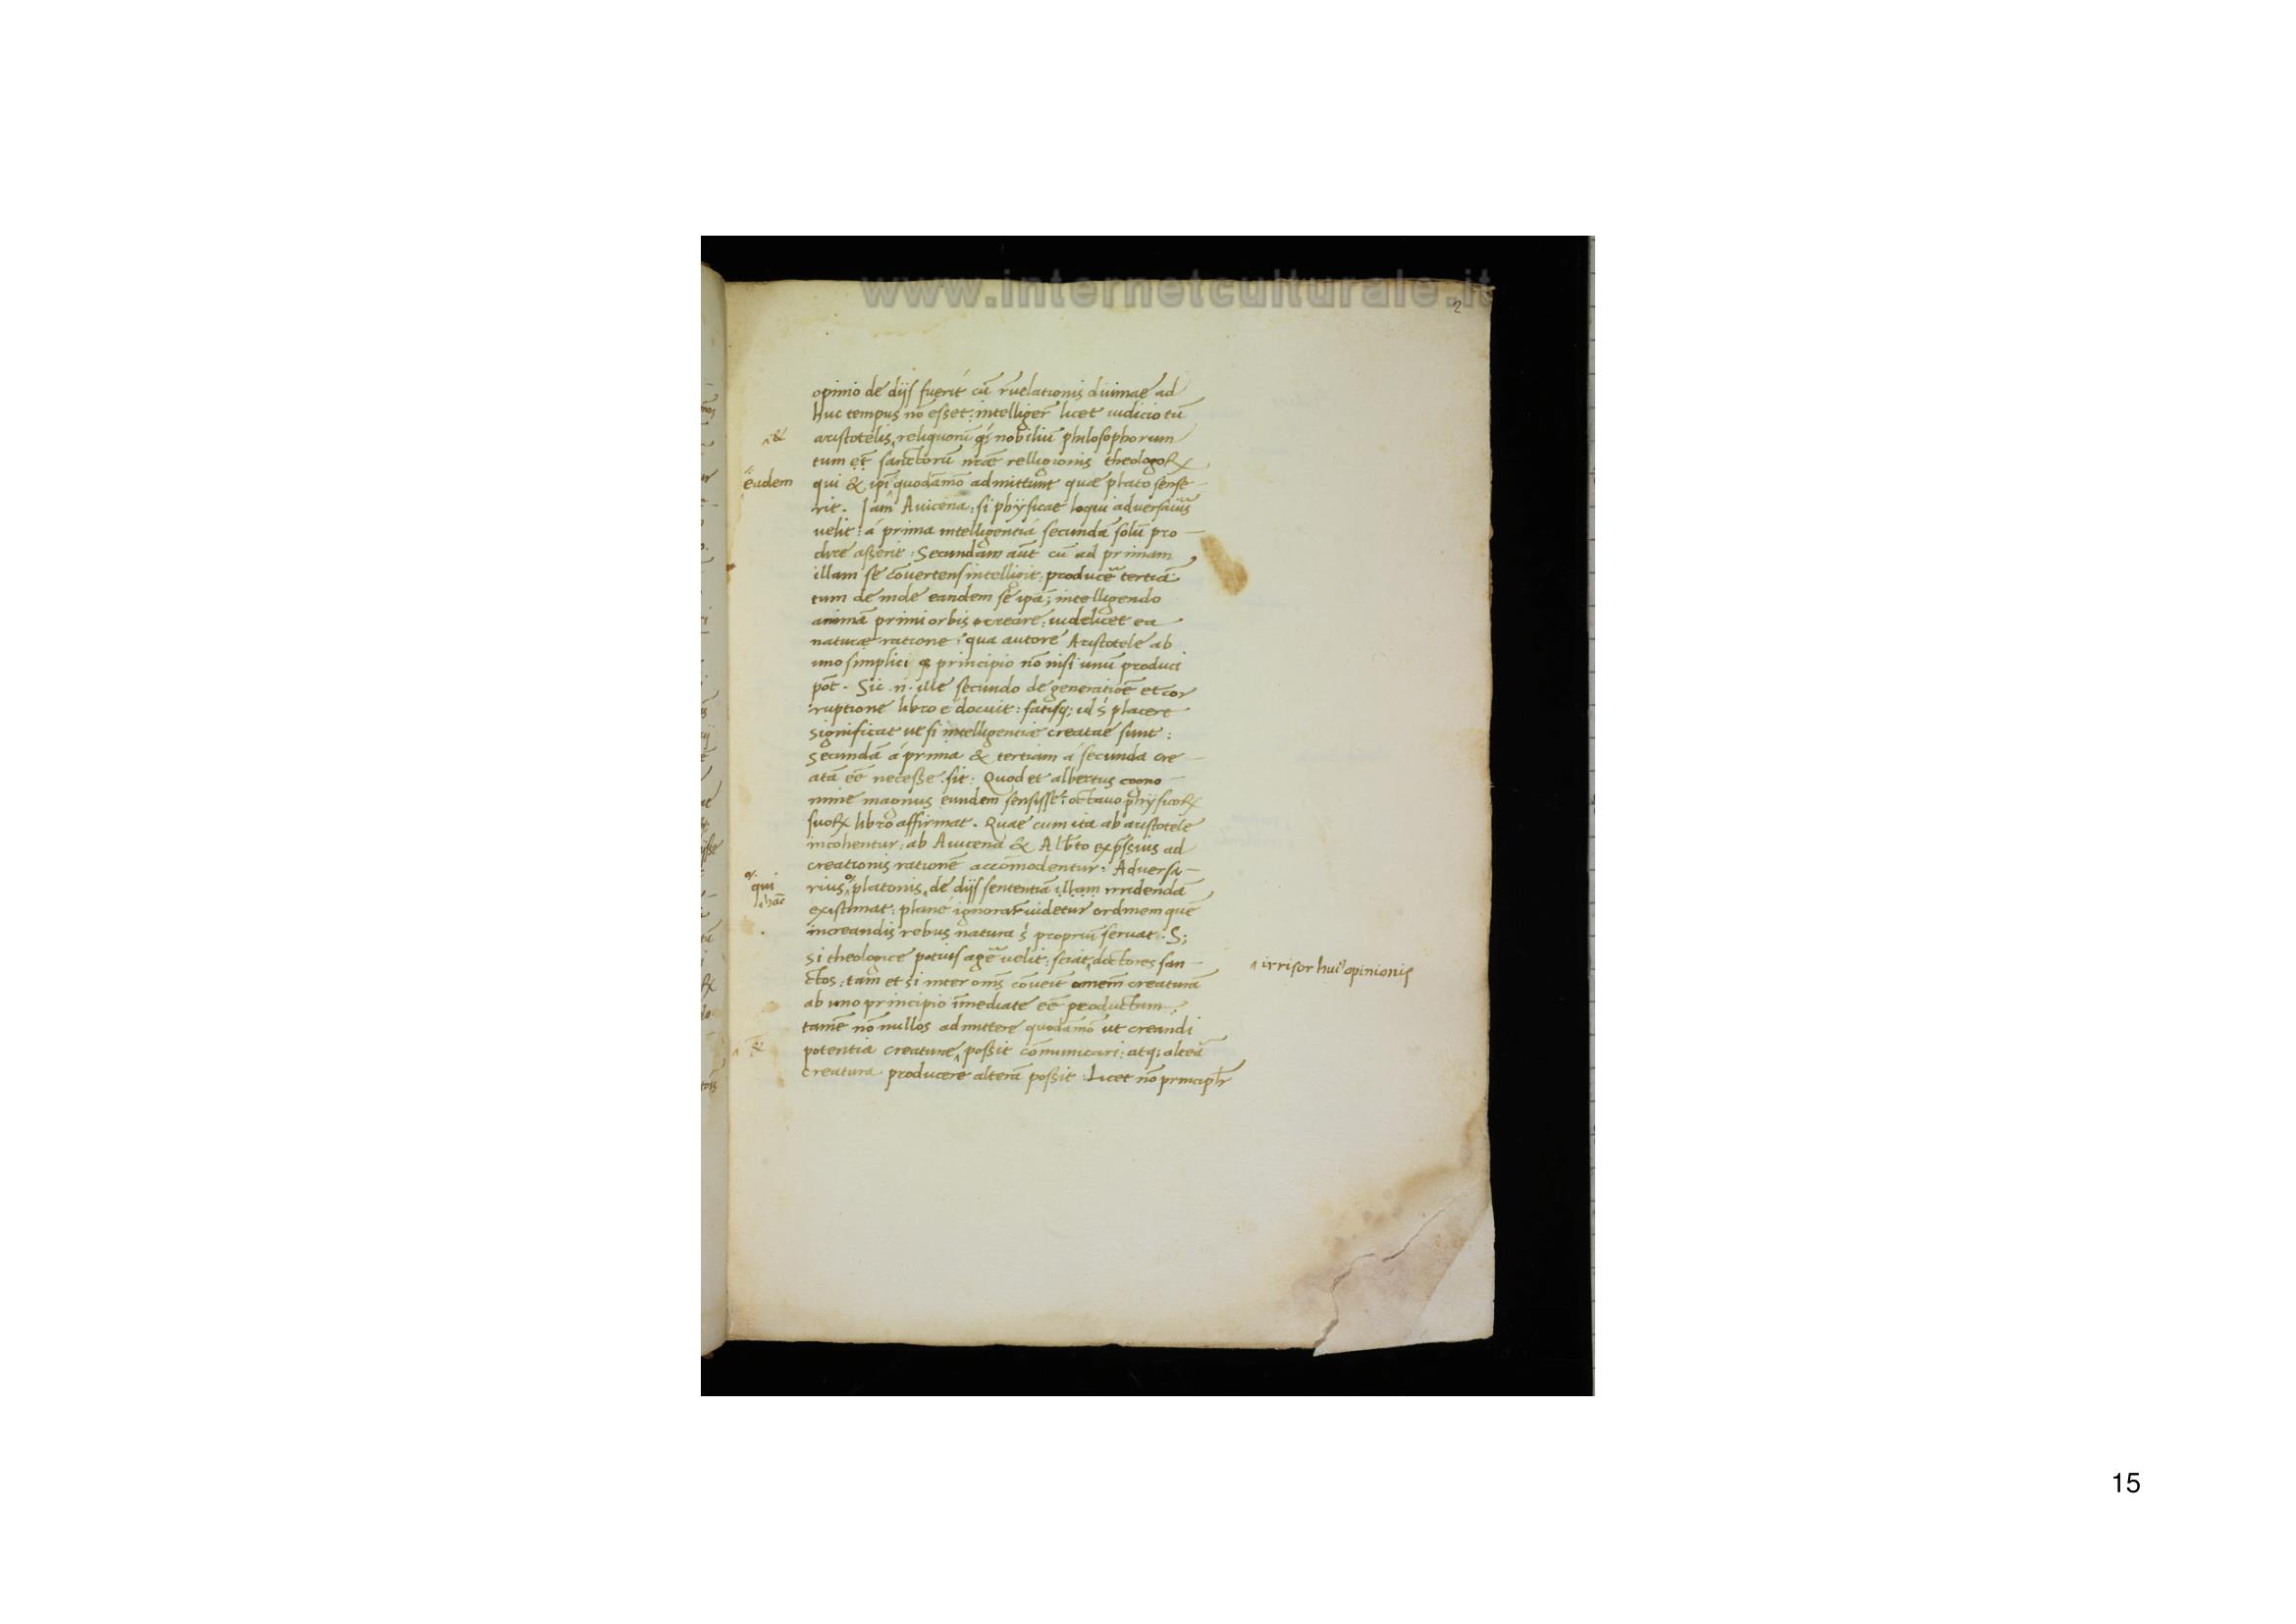 www.internetculturale.it
2
opinio de dijs fuerit cū r̄uelationis diuinae ad
huc tempus nō esset: intelliger̄ licet iudicio tū
^&
aristotelis, reliquorū nobiliū philosophorum
tum et sanctorū nr̄ae relligionis theologoꝝ
eadem
qui & ipi quodāmō admittunt quae plato sense
rit. Iam Auicena: si physicae loqui aduersarius
uelit: á prima intelligentiá secundā solū pro
dire asserit: Secundam aūt cū ad primam
illam se cōuertens intelligit: producere tertiā:
tum deinde eandem se ipā; intelligendo
animā primi orbis creare: uidelicet ea
naturae ratione: qua autore Aristotele ab
uno simplici principio nō nisi unū produci
pōt. Sic .n. ille secundo de generatiōe et cor
ruptione libro docuit: satisq; id placere
significat ut si intelligentiae creatae sunt:
secundā á prima & tertiam á secunda cre
atā eē necesse sit: Quod et albertus cogno
mine magnus eundem sensisse: octauo physicoꝝ
suoꝝ libro affirmat. Quae cum ita ab aristotele
incohentur: ab Auicena & Alb̄to exp̄ssius ad
creationis rationē accōmodentur: Aduersa
qui
rius platonis, de dijs sententiā illam irridendā
^hāc
existimat: plané ignorare uidetur ordinem quē
in creandis rebus natura propriū seruat. S;
si theologice potius agere uelit: sciat, doctores san
^ irrisor hui9 opinionis
ctos: tam et si inter om̄s cōueit omem̄ creaturā
ab uno principio īmediate eē productum
tamē nō nullos admittere quodāmō ut creandi
^ &
potentia creaturae, possit cōmunicari: atq; alterā
creatura producere alterā possit: Licet nō principlr̄
15